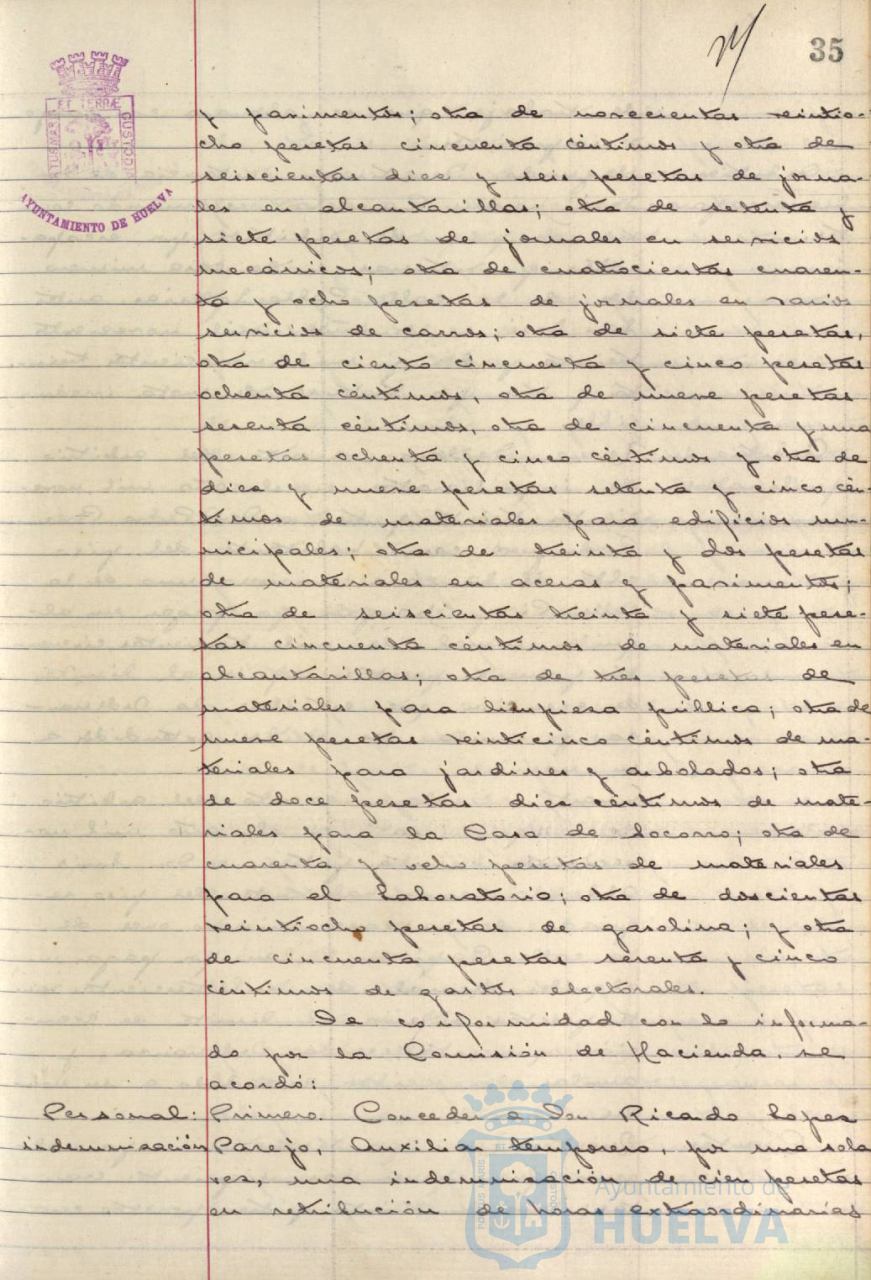 35
PORTUS MARIS ET TERRÆ CUSTODIA
AYUNTAMIENTO DE HUELVA
y pavimentos; otra de novecientas veintio-
cho pesetas cincuenta céntimos y otra de
seiscientas diez y seis pesetas de jorna-
les en alcantarillas; otra de setenta y
siete pesetas de jornales en servicios
mecánicos; otra de cuatrocientas cuaren-
ta y ocho pesetas de jornales en varios
servicios de carros; otra de siete pesetas,
otra de ciento cincuenta y cinco pesetas
ochenta céntimos, otra de nueve pesetas
sesenta céntimos, otra de cincuenta y una
pesetas ochenta y cinco céntimos y otra de
diez y nueve pesetas setenta y cinco cén-
timos de materiales para edificios mu-
nicipales; otra de treinta y dos pesetas
de materiales en aceras y pavimentos;
otra de seiscientas treinta y siete pese-
tas cincuenta céntimos de materiales en
alcantarillas; otra de tres pesetas de
materiales para limpieza pública; otra de
nueve pesetas veinticinco céntimos de ma-
teriales para jardines y arbolados; otra
de doce pesetas diez céntimos de mate-
riales para la Casa de Socorro; otra de
cuarenta y ocho pesetas de materiales
para el Laboratorio; otra de doscientas
veintiocho pesetas de gasolina; y otra
de cincuenta pesetas sesenta y cinco
céntimos de gastos electorales.
De conformidad con lo informa-
do por la Comisión de Hacienda, se
acordó:
Personal: Primero. Conceder a Don Ricardo Lopez
indemnización Parejo, Auxiliar temporero, por una sola
vez, una indemnización de cien pesetas
en retribución de horas extraordinarias
Ayuntamiento de
HUELVA